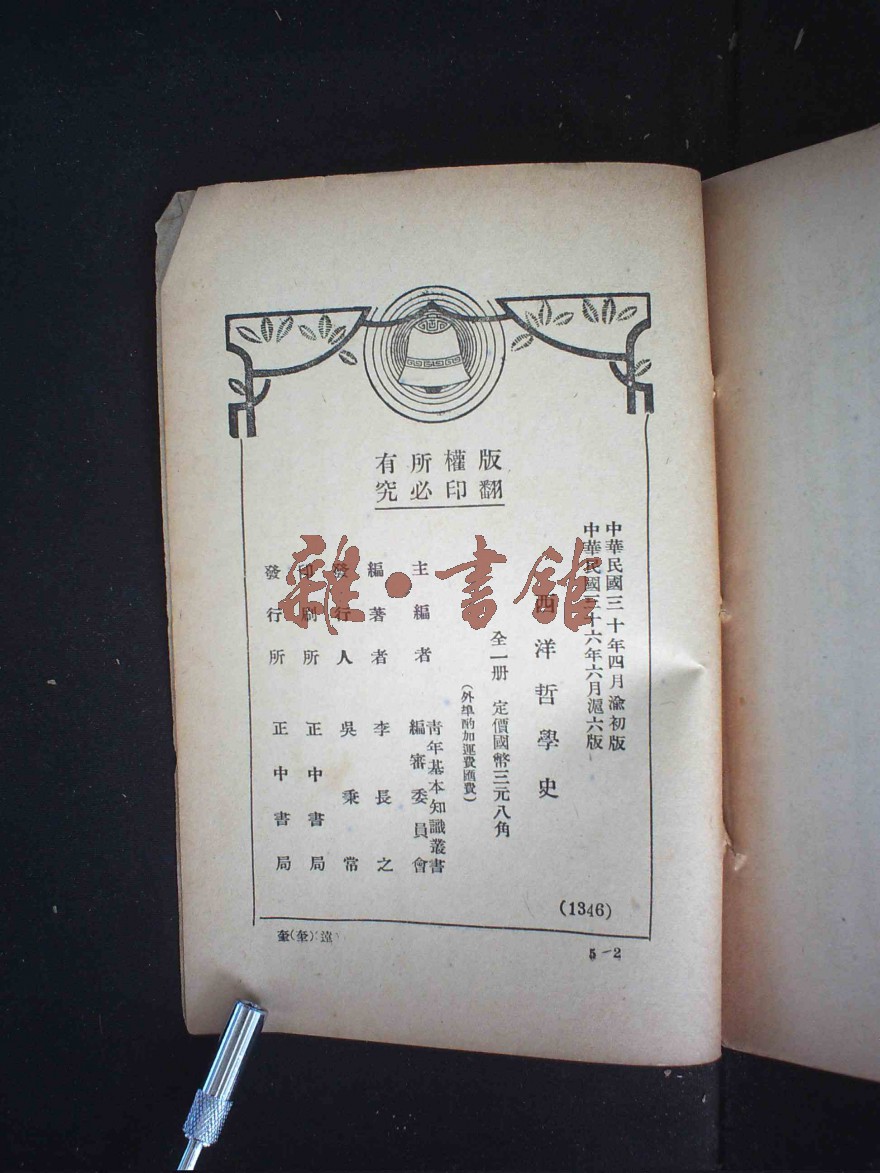 版權所有
翻印必究
中華民國三十年四月渝初版
中華民國三十六年六月滬六版
西洋哲學史
全一册 定價國幣三元八角
(外埠酌加運費匯費)
主編者 青年基本知識叢書編審委員會
編著者 李長之
發行人 吳秉常
印刷所 正中書局
發行所 正中書局
(1346)
5-2
雜·書館